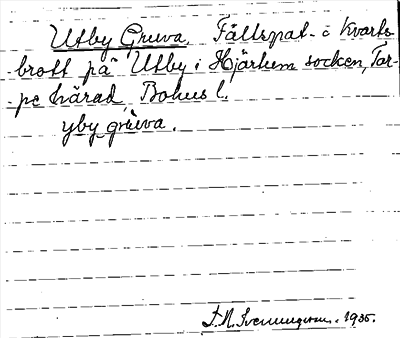 Utby Gruva. Fältspat- o Kvarts
-brott på Utby i Hjärtum socken, Tor-
-pe härad, Bohus l.
yby gruva.
1935.